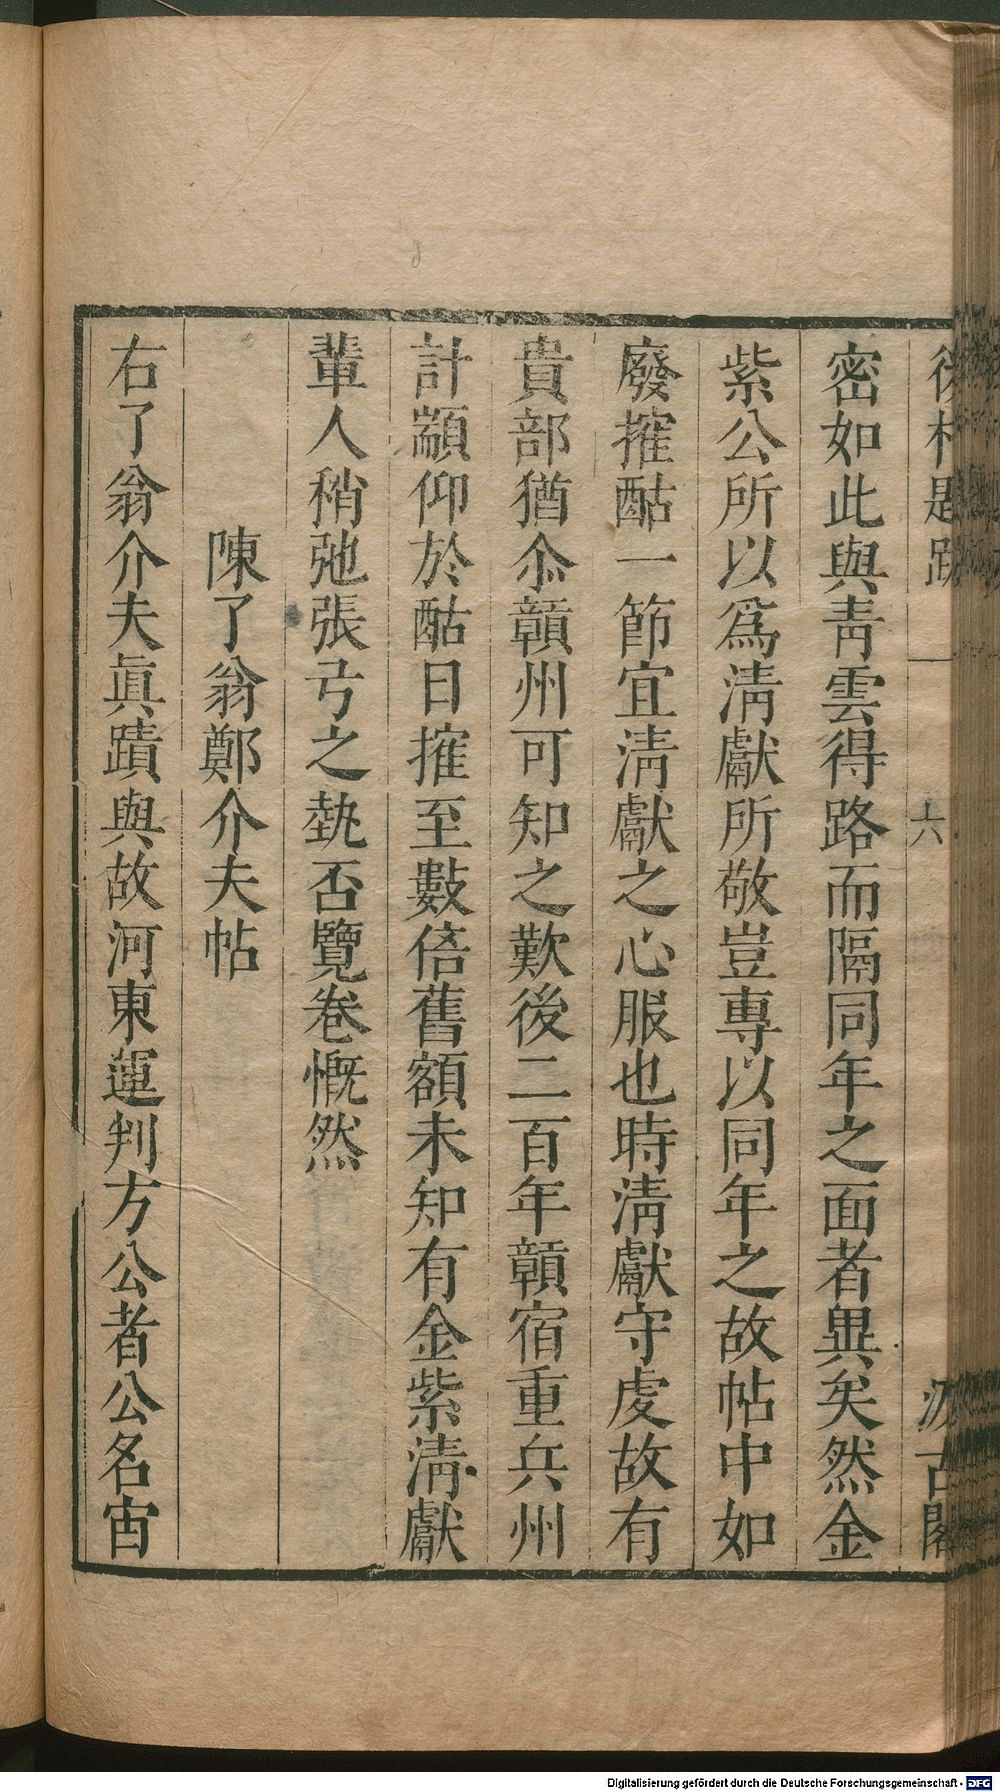 後村題跋 一 六 汲古閣
密如此與青雲得路而隔同年之面者異矣然金
紫公所以爲淸獻所敬豈專以同年之故帖中如
廢搉酤一節宜淸獻之心服也時淸獻守虔故有
貴部猶尒贑州可知之歎後二百年贑宿重兵州
計顓仰於酤日搉至數倍舊額未知有金紫淸獻
輩人稍弛張弓之埶否覽卷慨然
陳了翁鄭介夫帖
右了翁介夫眞蹟與故河東運判方公者公名宙
Digitalisierung gefördert durch die Deutsche Forschungsgemeinschaft - DFG